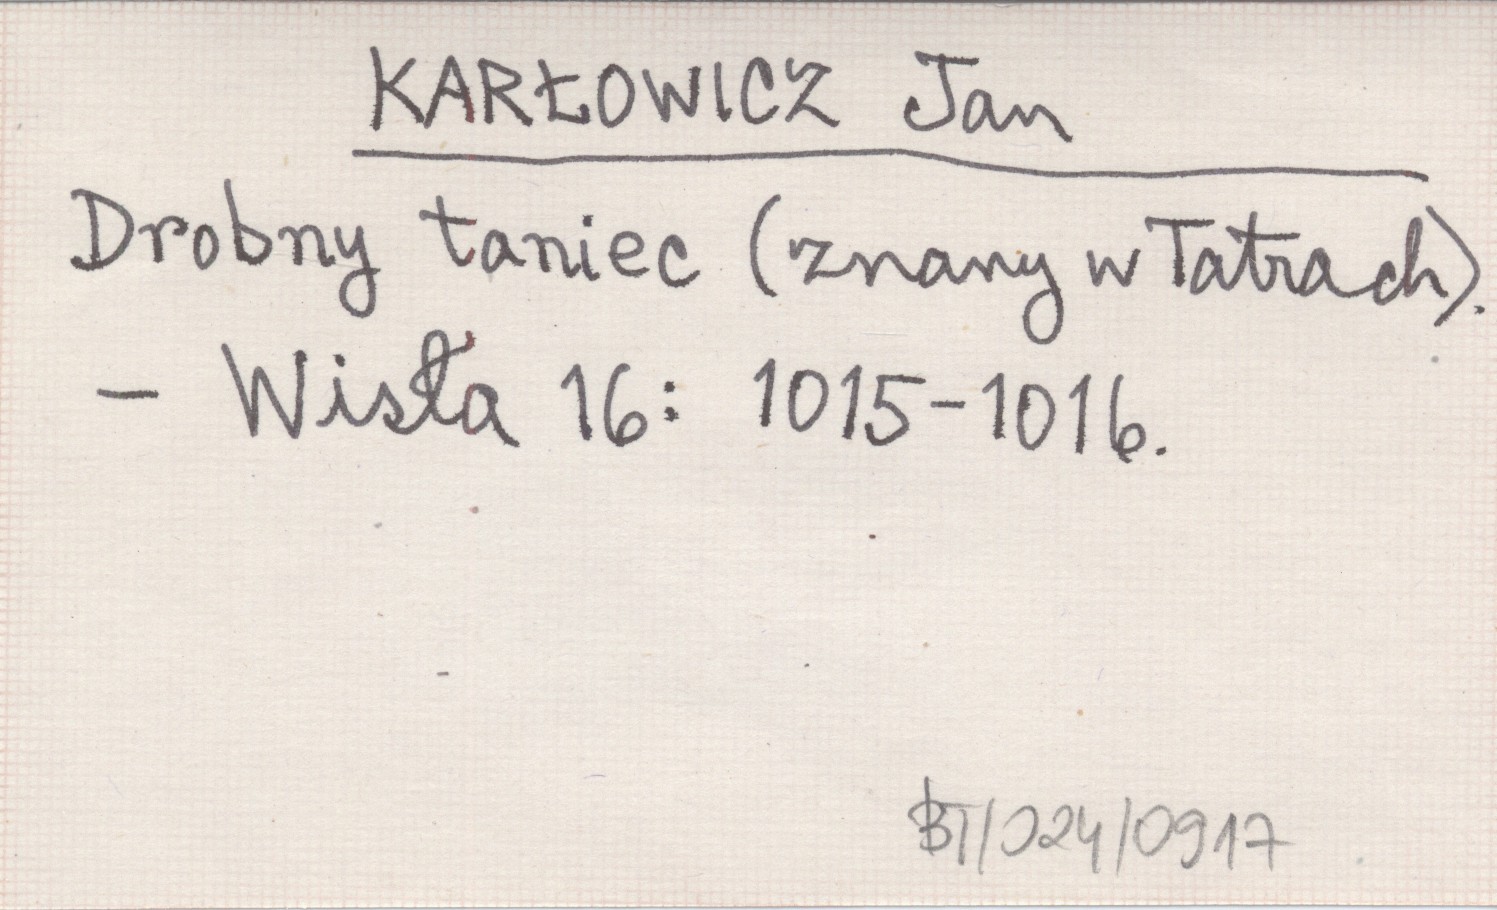 KARŁOWICZ Jan
Drobny taniec (znany w Tatrach).
- Wisła 16: 1015-1016.
BT/024/0917